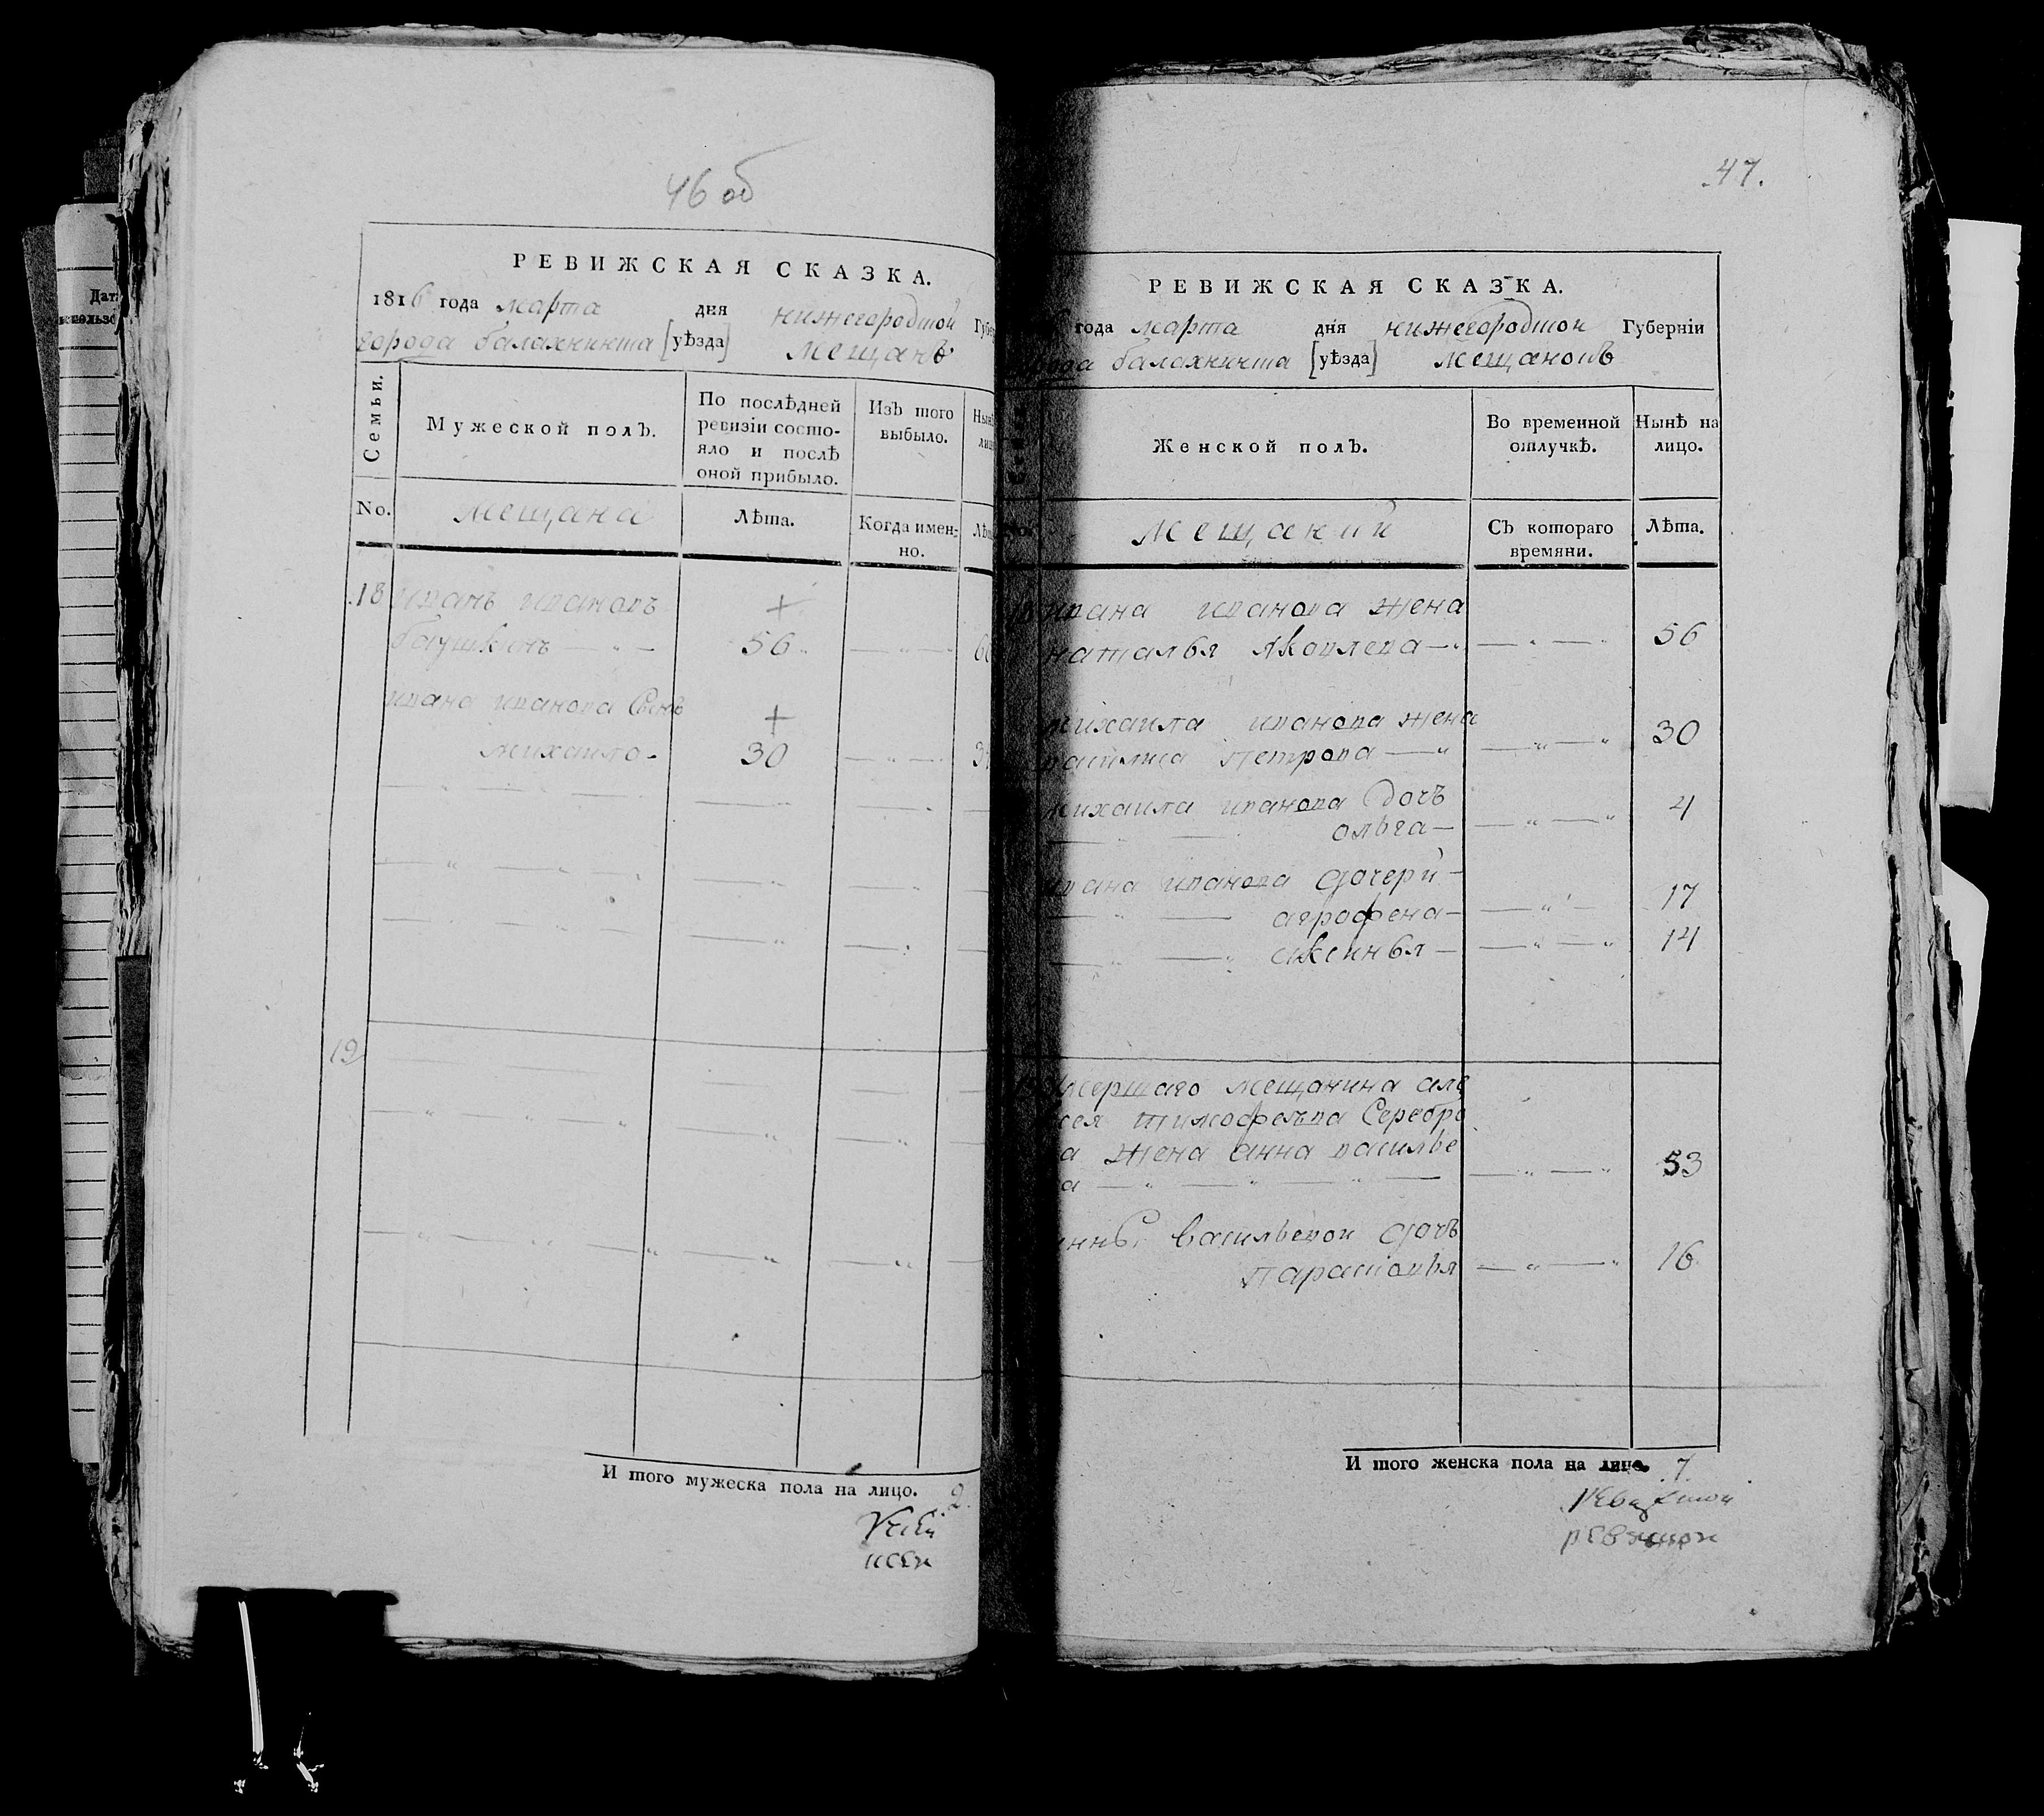 46 об
РЕВИЖСКАЯ СКАЗКА.
1816 года марта дня нижегородской Губер
города балахнинска [уѣзда] мещанъ
Семьи.
Мужеской полъ.
По послѣдней ревизіи состояло и послѣ оной прибыло.
Изъ того выбыло.
Нынѣ
лиц
No.
мещана
Лѣта.
Когда именно.
Лѣт
18 иванъ ивановъ
баушкинъ — 56
ивана иванова сынъ
михаило — 30
19
И того мужеска пола на лицо. 2.
47.
РЕВИЖСКАЯ СКАЗКА.
года марта дня нижегородской Губерніи
города балахнинска [уѣзда] мещановъ
Женской полъ.
Во временной отлучкѣ.
Нынѣ на лицо.
мещанки
Съ котораго времяни.
Лѣта.
ивана иванова жена
наталья яковлева — 56
михаила иванова жена
василиса петрова — 30
михаила иванова дочь
ольга — 4
ивана иванова дочери
аграфена — 17
аксинья — 14
умершаго мещанина але
ксея тимофеева Серебро
ва жена анна василье
ва — 53
анны васильевой дочь
парасковья — 16
И того женска пола на лицо. 7.
Дат
использо